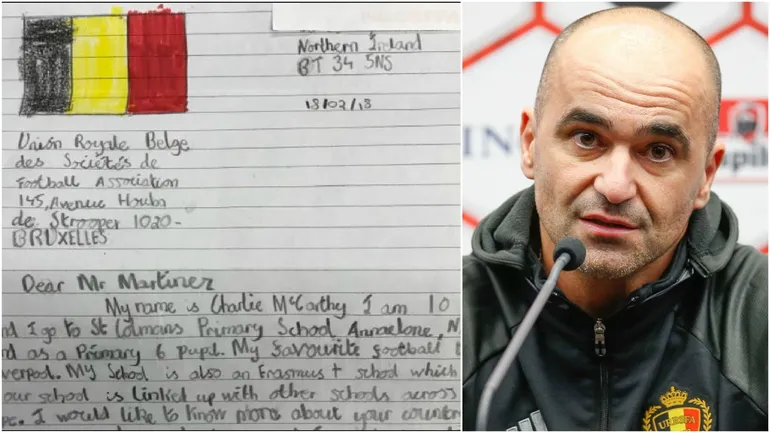 Northern Ireland
BT 34 5NS
18/02/18
Union Royale Belge
des Sociétés de
Football Association
145, Avenue Houba
de Strooper 1020-
BRUXELLES
Dear Mr Martinez
My name is Charlie McCarthy I am 10
nd I go to St Colmans Primary School Annaclone, N
nd as a Primary 6 pupil. My favourite football t
verpool. My School is also an Erasmus + school which
our school is linked up with other schools across
pe. I would like to know more about your countr
ING
upil
URBSFA